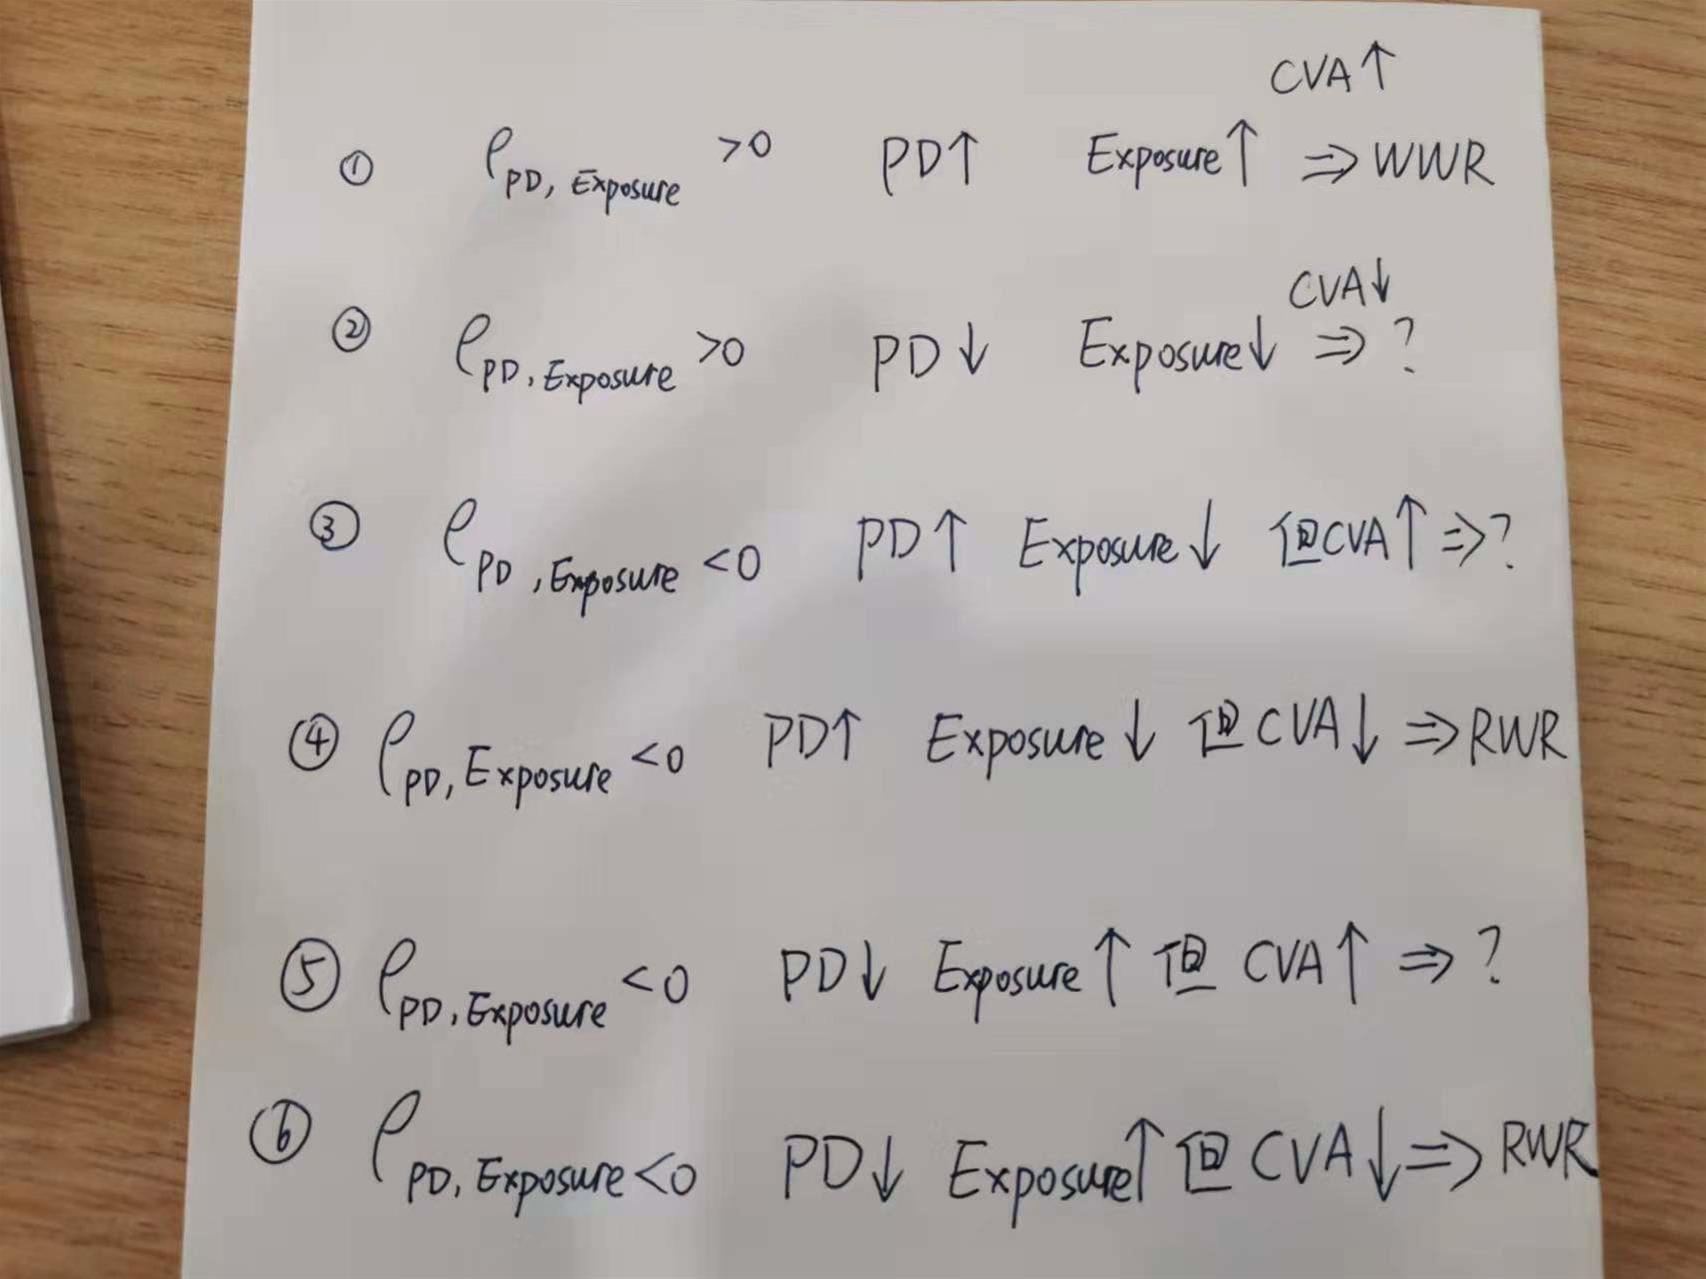 CVA↑
① ρPD, Exposure >0 PD↑ Exposure↑ ⇒ WWR
CVA↓
② ρPD, Exposure >0 PD↓ Exposure↓ ⇒ ?
③ ρPD, Exposure <0 PD↑ Exposure↓ 但CVA↑ ⇒ ?
④ ρPD, Exposure <0 PD↑ Exposure↓ 但CVA↓ ⇒ RWR
⑤ ρPD, Exposure <0 PD↓ Exposure↑ 但 CVA↑ ⇒ ?
⑥ ρPD, Exposure <0 PD↓ Exposure↑ 但CVA↓ ⇒ RWR